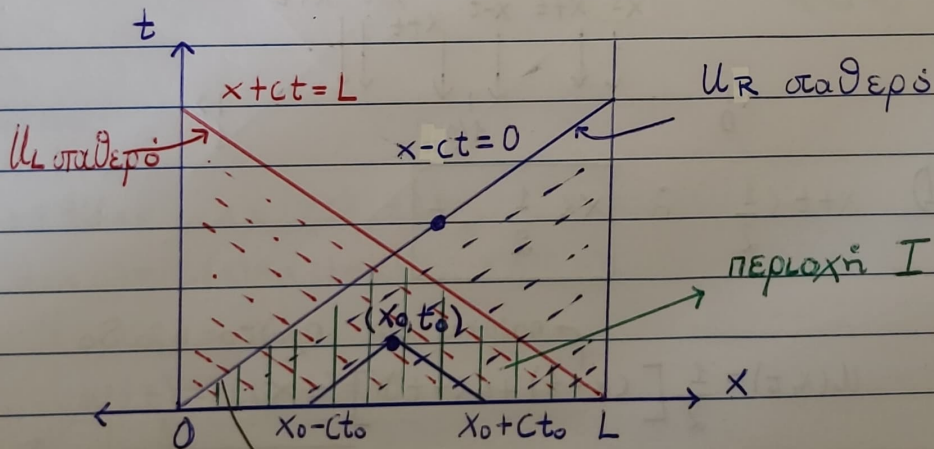 t
x+ct=L
U_R σταθερό
U_L σταθερό
x-ct=0
περιοχή I
(x₀,t₀)
x
0
x₀-ct₀
x₀+ct₀
L